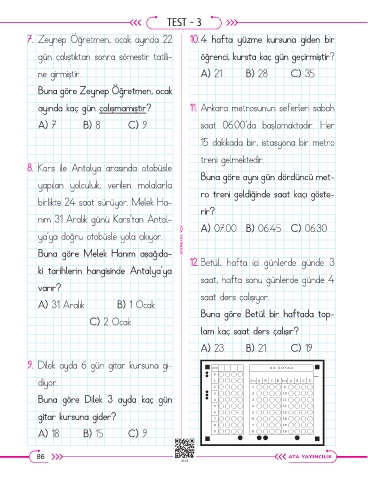 TEST - 3
7. Zeynep Öğretmen, ocak ayında 22
gün çalıştıktan sonra sömestir tatili-
ne girmiştir.
Buna göre Zeynep Öğretmen, ocak
ayında kaç gün çalışmamıştır?
A) 7 B) 8 C) 9
8. Kars ile Antalya arasında otobüsle
yapılan yolculuk, verilen molalarla
birlikte 24 saat sürüyor. Melek Ha-
nım 31 Aralık günü Kars'tan Antal-
ya'ya doğru otobüsle yola çıkıyor.
Buna göre Melek Hanım aşağıda-
ki tarihlerin hangisinde Antalya'ya
varır?
A) 31 Aralık B) 1 Ocak
C) 2 Ocak
9. Dilek ayda 6 gün gitar kursuna gi-
diyor.
Buna göre Dilek 3 ayda kaç gün
gitar kursuna gider?
A) 18 B) 15 C) 9
10. 4 hafta yüzme kursuna giden bir
öğrenci, kursta kaç gün geçirmiştir?
A) 21 B) 28 C) 35
11. Ankara metrosunun seferleri sabah
saat 06.00'da başlamaktadır. Her
15 dakikada bir, istasyona bir metro
treni gelmektedir.
Buna göre aynı gün dördüncü met-
ro treni geldiğinde saat kaçı göste-
rir?
A) 07.00 B) 06.45 C) 06.30
12. Betül, hafta içi günlerde günde 3
saat, hafta sonu günlerde günde 4
saat ders çalışıyor.
Buna göre Betül bir haftada top-
lam kaç saat ders çalışır?
A) 23 B) 21 C) 19
AD SOYAD
86
ATA YAYINCILIK